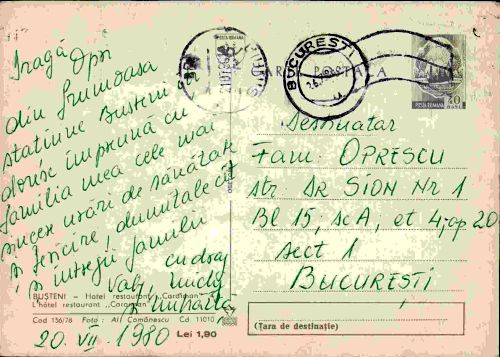 Dragă Opri
din frumoasa
stațiune Bușteni
doresc împreună cu
familia mea cele mai
sincere urări de sănătate
și fericire, dumitale cît
și întregii familii
cu drag
Vali,
și Mihaela
20. VII. 1980
BUȘTENI – Hotel restaurant „Caraiman”
L'hôtel restaurant „Caraiman”
Cod 156/78 Foto: Al. Comănescu Cd. 11010
Lei 1,90
BUCUREȘTI
CARTE POȘTALĂ
POȘTA ROMÂNĂ
40
Destinatar
Fam. OPRESCU
str. DR SION Nr 1
Bl 15, sc A, et 4, ap 20
sect 1
BUCUREȘTI
(Țara de destinație)